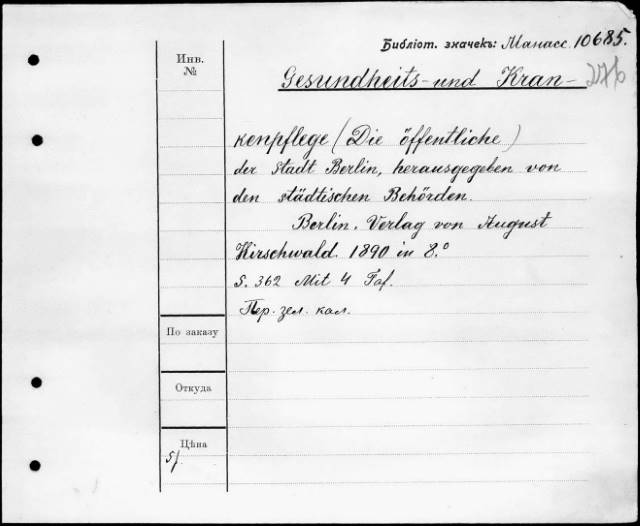 Библіот. значекъ: Манасс. 10685.
Инв.
№
Gesundheits- und Kran-
kenpflege (Die öffentliche)
der Stadt Berlin, herausgegeben von
den städtischen Behörden.
Berlin. Verlag von August
Hirschwald. 1890 in 8.°
S. 362 Mit 4 Taf.
Пер. зел. кал.
По заказу
Откуда
Цѣна